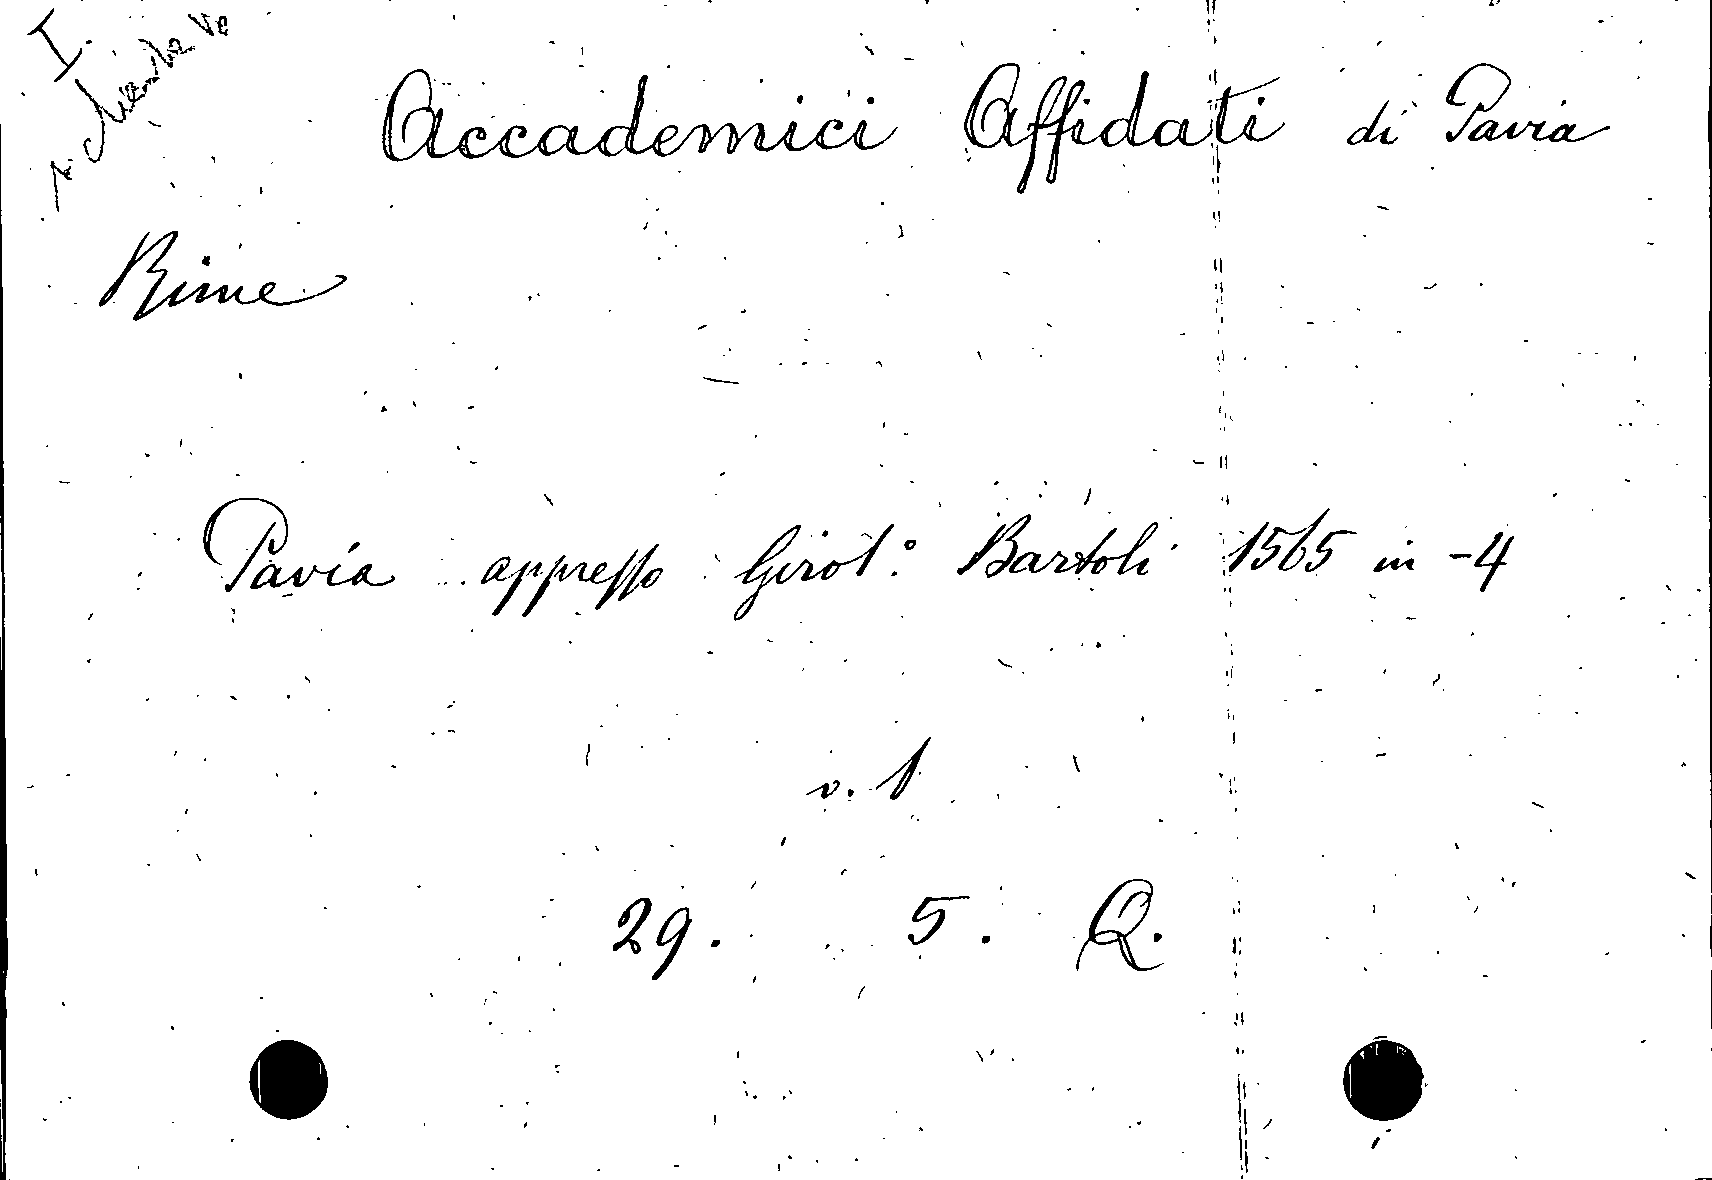 I.
Accademici Affidati di Pavia
Rime
Pavia appresso Girol.º Bartoli 1565 in -4
v. 1
29. 5. Q.